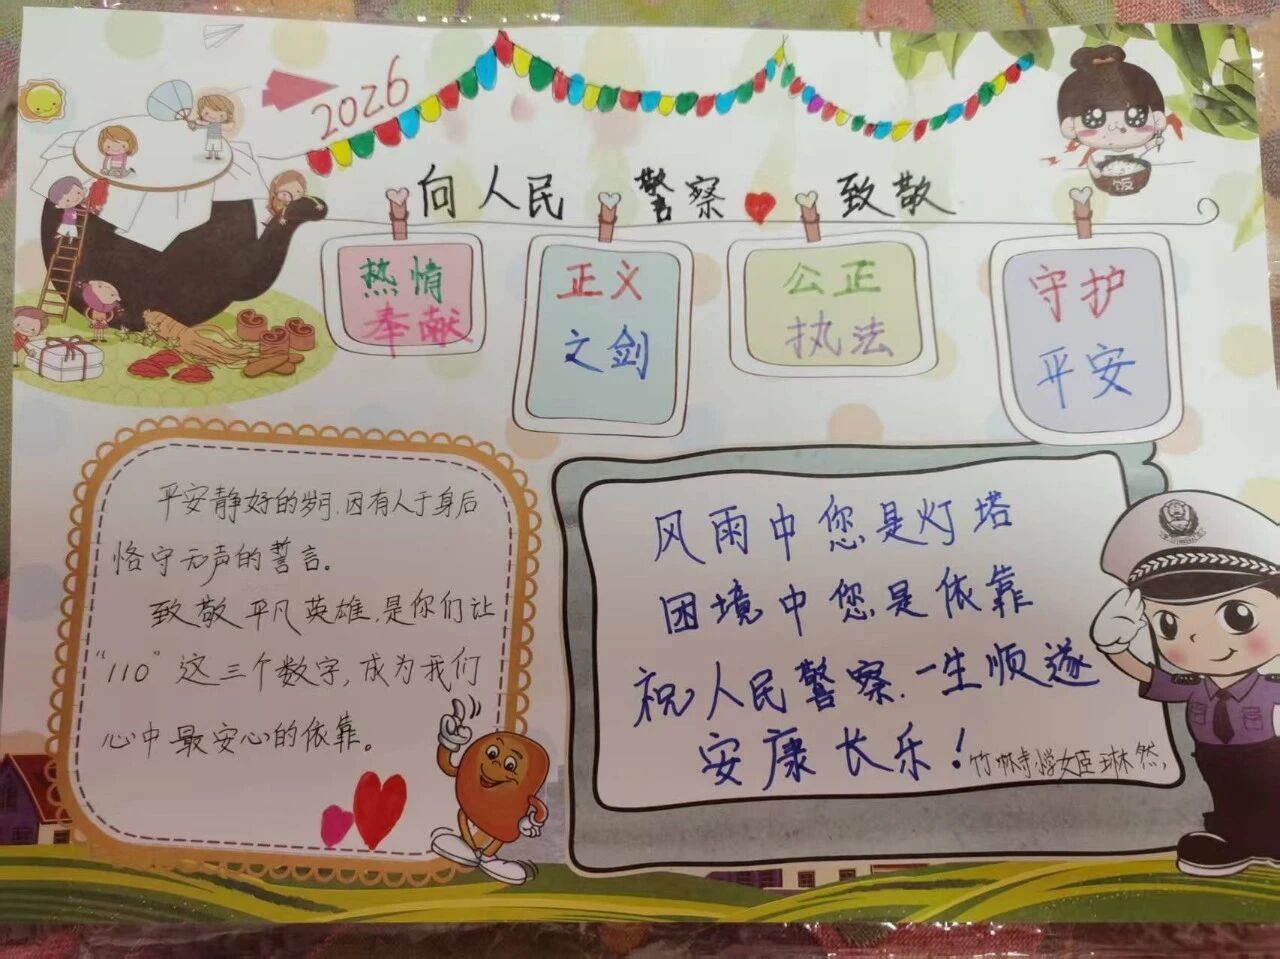 2026
向人民警察致敬
热情
奉献
正义
文剑
公正
执法
守护
平安
饭
平安静好的岁月,因有人于身后
恪守无声的誓言。
致敬平凡英雄,是你们让
"110"这三个数字,成为我们
心中最安心的依靠。
风雨中您是灯塔
困境中您是依靠
祝人民警察,一生顺遂
安康长乐!
竹林寺学姬琳然